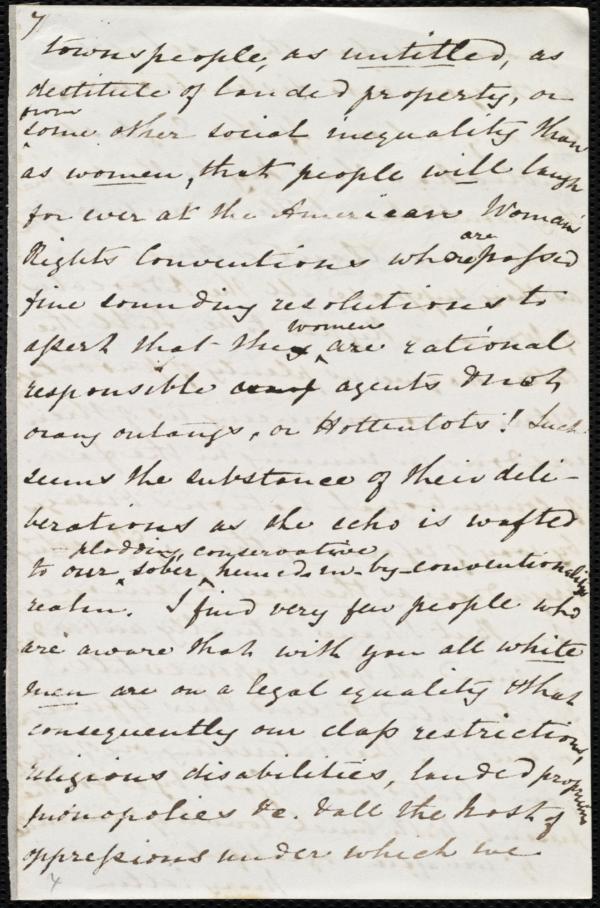 7
townspeople, as untitled, as
destitute of landed property, or
from
some other social inequality than
as women, that people will laugh
for ever at the American Woman's
Rights Conventions where are passed
fine sounding resolutions to
assert that they women are rational
responsible agents & not
orang outangs, or Hottentots! Such
seems the substance of their deli-
berations as the echo is wafted
plodding, conservative
to our sober, hemed-in-by-conventionality
realm. I find very few people who
are aware that with you all white
men are on a legal equality & that
consequently our class restrictions,
religious disabilities, landed propertied
monopolies &c. & all the host of
oppressions under which we